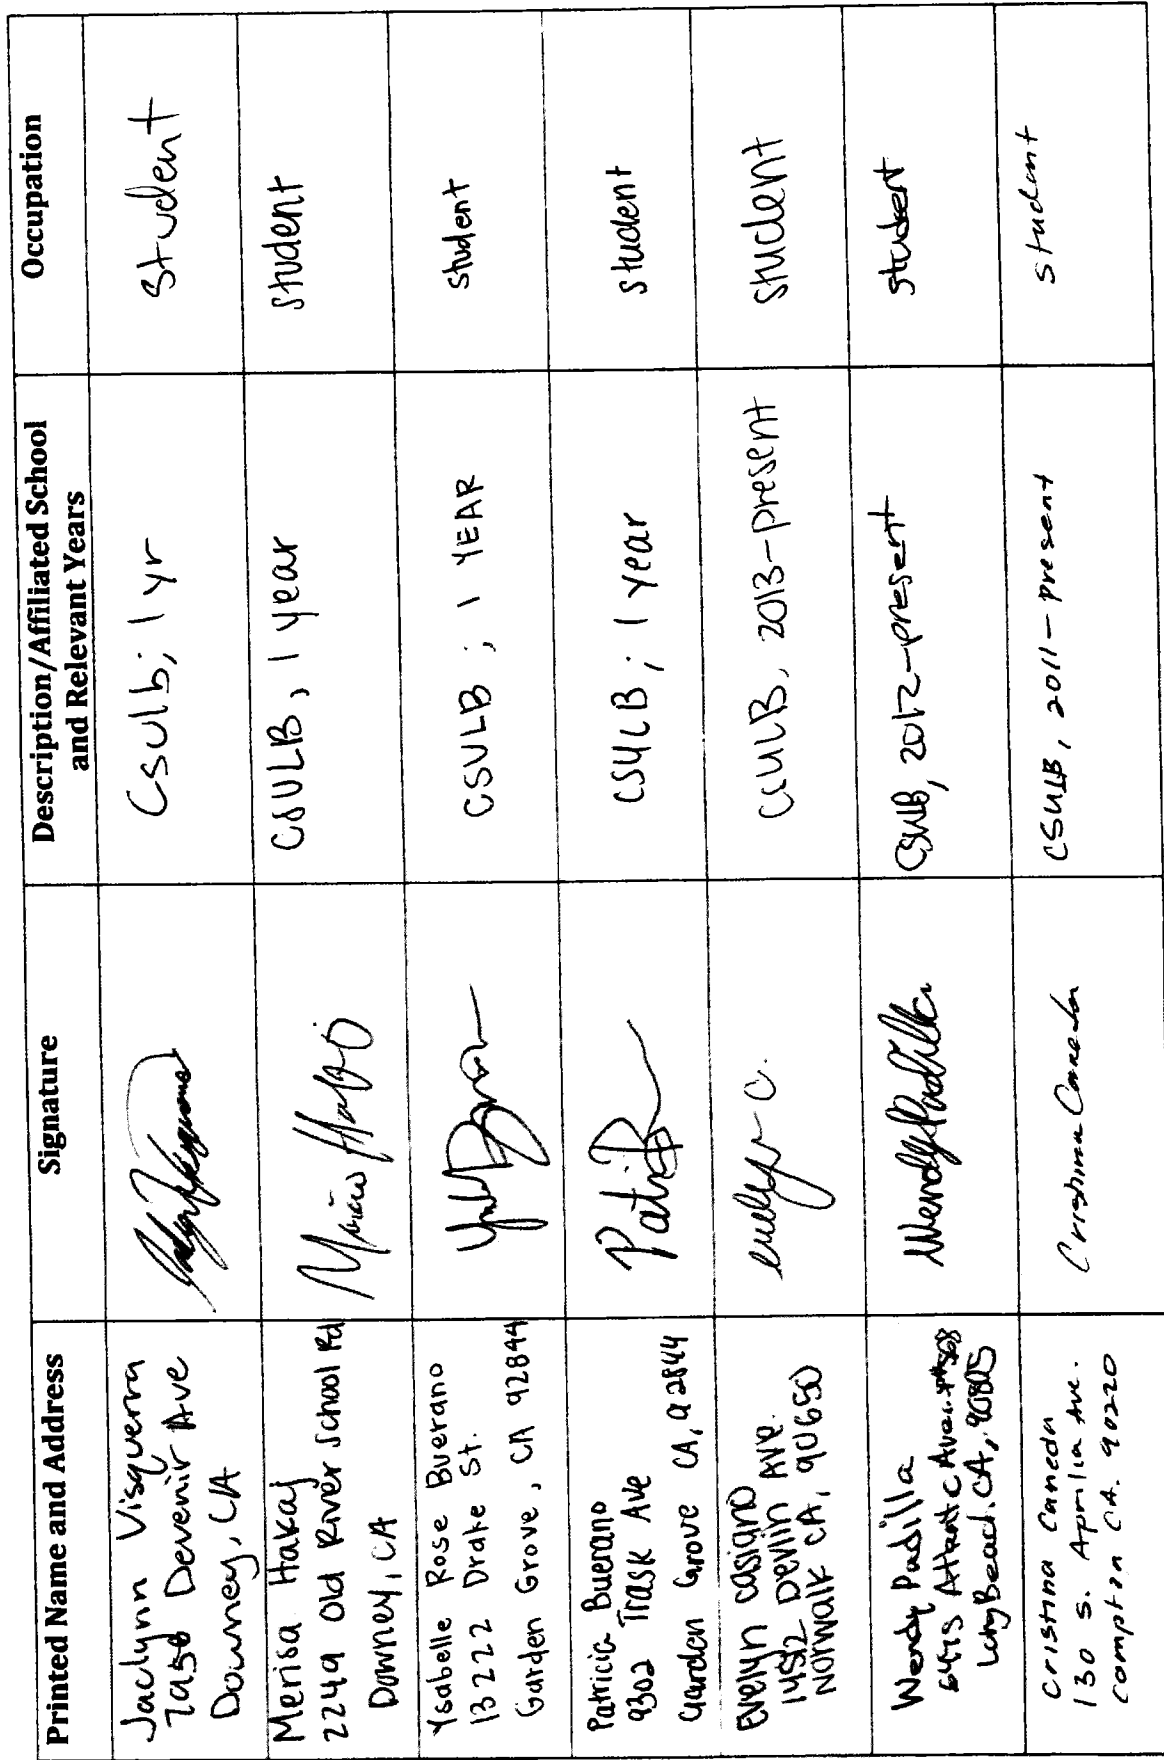 Printed Name and Address
Signature
Description/Affiliated School
and Relevant Years
Occupation
Jaclynn Visquerra
Devenir Ave
Downey, CA
Csulb; 1 yr
Student
Merisa Hakaj
2249 Old River School Rd
Downey, CA
CSULB, 1 year
student
Ysabelle Rose Buerano
13222 Drake St.
Garden Grove, CA 92844
CSULB ; 1 YEAR
student
Patricia Buerano
9302 Trask Ave
Garden Grove CA, 92844
Patri
CSULB ; 1 year
student
Evelyn Casiano
14512 Devlin Ave.
Norwalk CA, 90650
evelyn c.
CSULB, 2013-present
student
Wendy Padilla
Atlantic Ave.
Long Beach. CA, 90805
Wendy Padilla
CSULB, 2012-present
student
Cristina Canedo
130 S. Aprilia Ave.
Compton CA. 90220
Cristina Canedo
CSULB, 2011-present
student